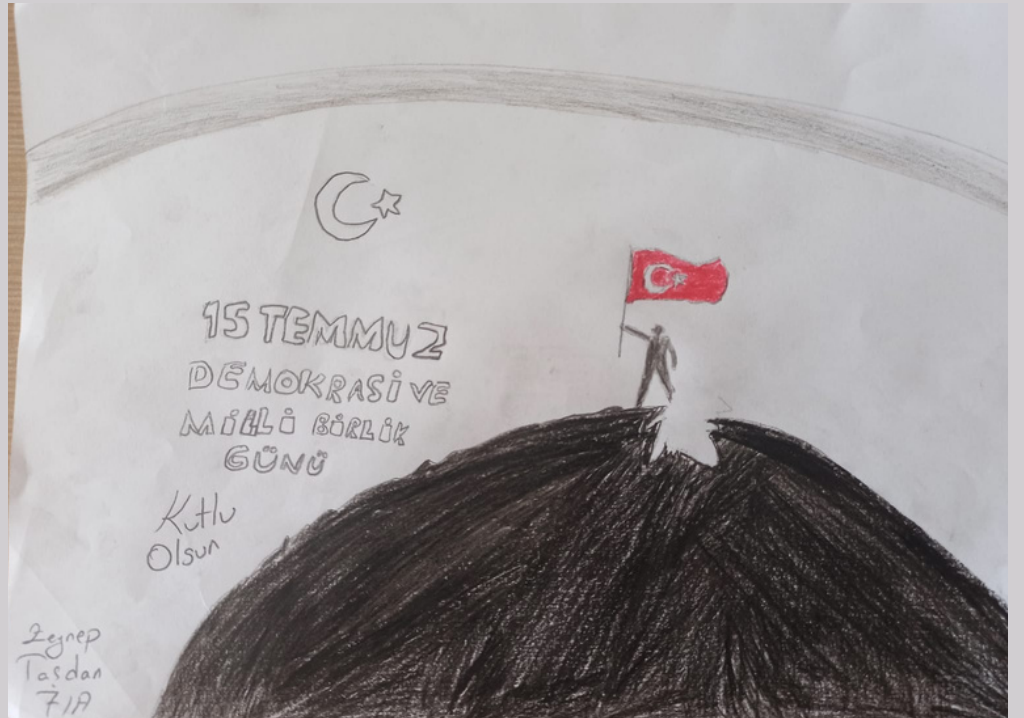 15 TEMMUZ
DEMOKRASİ VE
MİLLİ BİRLİK
GÜNÜ
Kutlu
Olsun
Zeynep
Taşdan
7/A